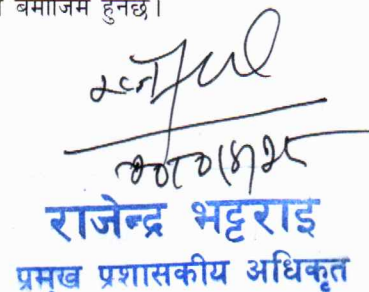 बमोजिम हुनेछ।
राजेन्द्र भट्टराइ
प्रमुख प्रशासकीय अधिकृत